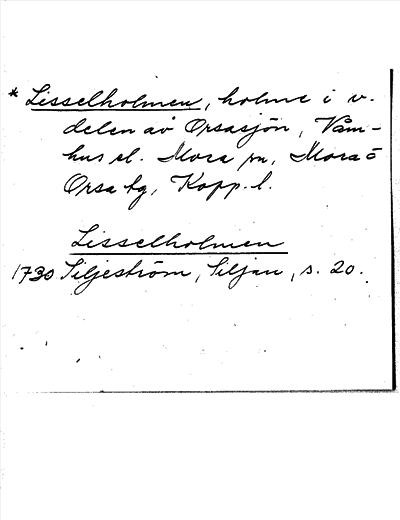 * Lisselholmen, holme i v.
delen av Orsasjön, Våm-
hus el. Mora sn, Mora o
Orsa tg, Kopp. l.
Lisselholmen
1730 Siljeström, Siljan, s. 20.